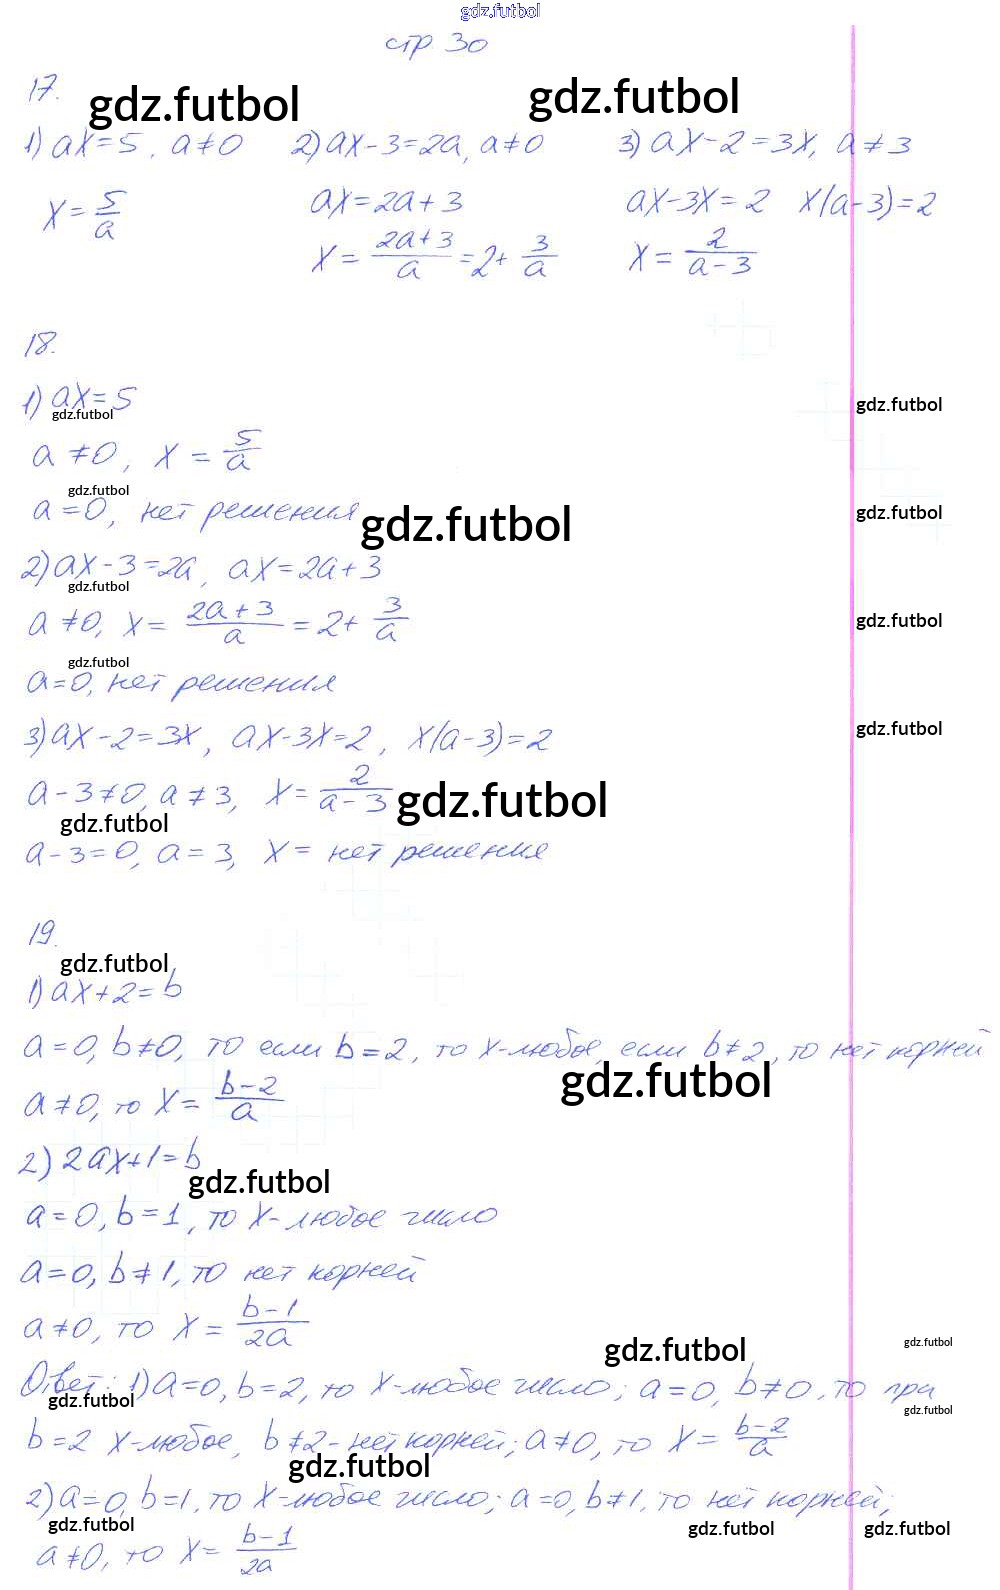 gdz.futbol
стр 30
17.
gdz.futbol gdz.futbol
1) ax=5, a≠0 2) ax-3=2a, a≠0 3) ax-2=3x, a≠3
x=5/a ax=2a+3 ax-3x=2 x(a-3)=2
x=(2a+3)/a=2+3/a x=2/(a-3)
18.
1) ax=5
gdz.futbol gdz.futbol
a≠0, x=5/a
gdz.futbol
a=0, нет решения gdz.futbol gdz.futbol
2) ax-3=2a, ax=2a+3
gdz.futbol
a≠0, x=(2a+3)/a=2+3/a gdz.futbol
gdz.futbol
a=0, нет решения
3) ax-2=3x, ax-3x=2, x(a-3)=2 gdz.futbol
a-3≠0, a≠3, x=2/(a-3) gdz.futbol
gdz.futbol
a-3=0, a=3, x= нет решения
19.
gdz.futbol
1) ax+2=b
a=0, b≠0, то если b=2, то x-любое, если b≠2, то нет корней
gdz.futbol
a≠0, то x=(b-2)/a
2) 2ax+1=b
gdz.futbol
a=0, b=1, то x-любое число
a=0, b≠1, то нет корней
a≠0, то x=(b-1)/2a
gdz.futbol gdz.futbol
Ответ: 1) a=0, b=2, то x-любое число; a=0, b≠0, то при
gdz.futbol gdz.futbol
b=2 x-любое, b≠2-нет корней; a≠0, то x=(b-2)/a
gdz.futbol
2) a=0, b=1, то x-любое число; a=0, b≠1, то нет корней;
gdz.futbol gdz.futbol gdz.futbol
a≠0, то x=(b-1)/2a